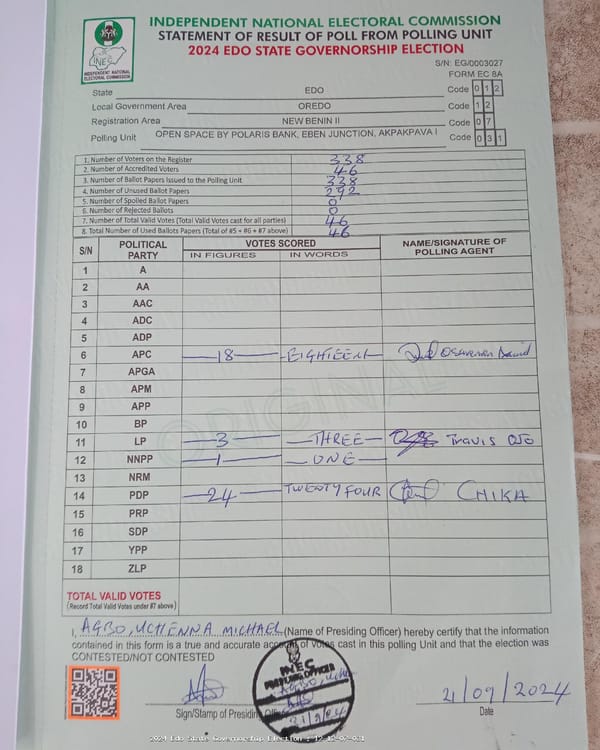 INDEPENDENT NATIONAL ELECTORAL COMMISSION
STATEMENT OF RESULT OF POLL FROM POLLING UNIT
2024 EDO STATE GOVERNORSHIP ELECTION
INEC
INDEPENDENT NATIONAL ELECTORAL COMMISSION
S/N: EG/0003027
FORM EC 8A
State EDO Code 0 1 2
Local Government Area OREDO Code 1 2
Registration Area NEW BENIN II Code 0 7
Polling Unit OPEN SPACE BY POLARIS BANK, EBEN JUNCTION, AKPAKPAVA I Code 0 3 1
1. Number of Voters on the Register 338
2. Number of Accredited Voters 46
3. Number of Ballot Papers Issued to the Polling Unit 338
4. Number of Unused Ballot Papers 292
5. Number of Spoiled Ballot Papers 0
6. Number of Rejected Ballots 0
7. Number of Total Valid Votes (Total Valid Votes cast for all parties) 46
8. Total Number of Used Ballots Papers (Total of #5 + #6 + #7 above) 46
S/N POLITICAL PARTY VOTES SCORED NAME/SIGNATURE OF POLLING AGENT
IN FIGURES IN WORDS
1 A
2 AA
3 AAC
4 ADC
5 ADP
6 APC 18 EIGHTEEN
7 APGA
8 APM
9 APP
10 BP
11 LP 3 THREE Travis
12 NNPP 1 ONE
13 NRM
14 PDP 24 TWENTY FOUR CHIKA
15 PRP
16 SDP
17 YPP
18 ZLP
ORIGINAL
TOTAL VALID VOTES
(Record Total Valid Votes under #7 above)
I, AGBO, UCHENNA MICHAEL (Name of Presiding Officer) hereby certify that the information
contained in this form is a true and accurate account of votes cast in this polling Unit and that the election was
CONTESTED/NOT CONTESTED
INEC
PRESIDING OFFICER
21/09/2024
Sign/Stamp of Presiding Officer
Date
2024 Edo State Governorship Election : 12-12-07-031